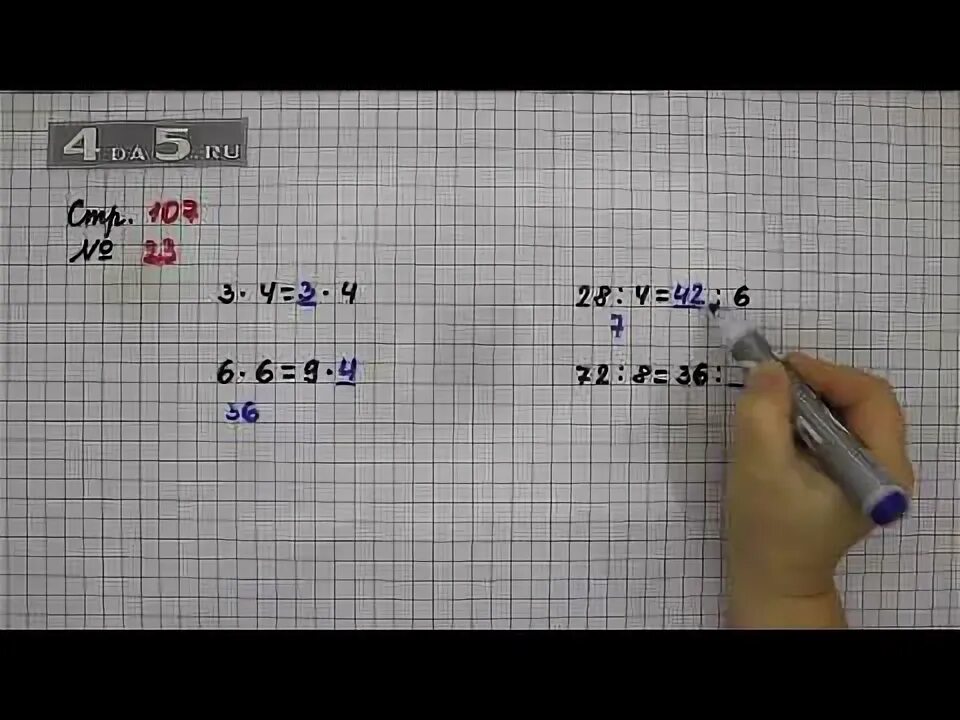 4 DA 5.RU
Стр. 107
№ 23
3 · 4 = 3 · 4
28 : 4 = 42 : 6
7
6 · 6 = 9 · 4
72 : 8 = 36 : _
36